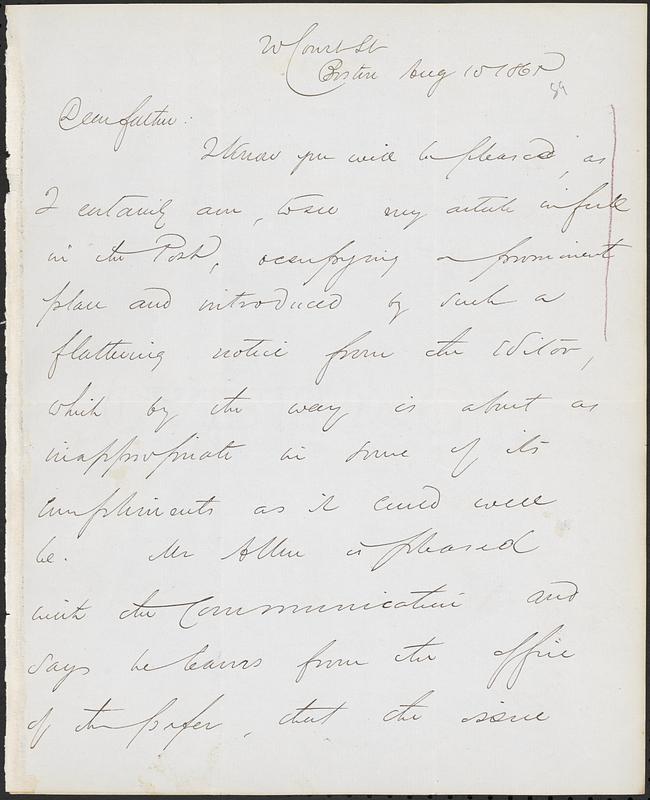 Court St
Boston Aug 10 186
59
Dear father:
I know you will be pleased, as
I certainly am, to see my article in full
in the Post, occupying a prominent
place and introduced by such a
flattering notice from the editor,
which by the way is about as
inappropriate in some of its
compliments as it could well
be. Mr Allen is pleased
with the communication and
says he learns from the office
of the paper, that the issue